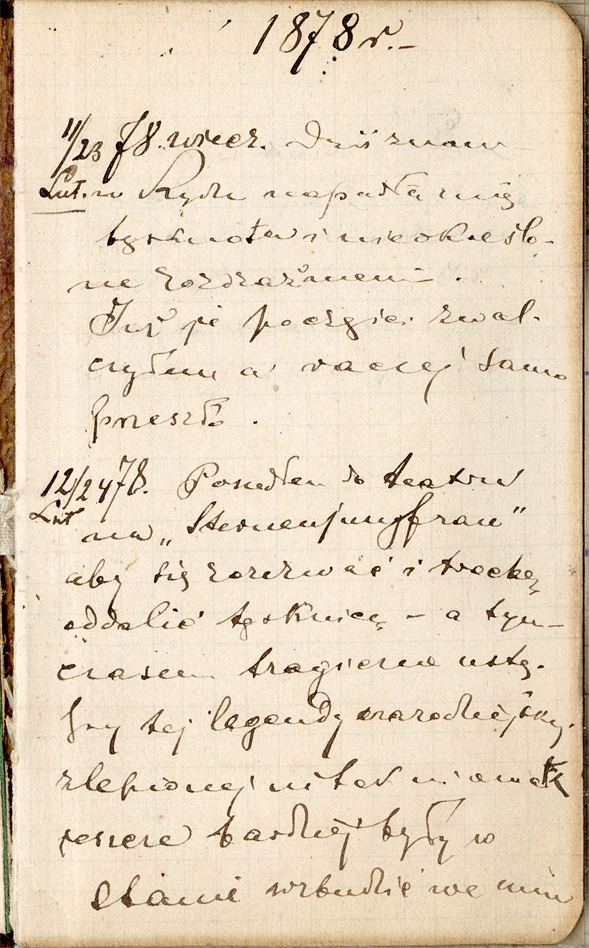 1878 r.-
11/23 78. wiecz. Dziś znow
Lut. w Rydze napadła mię
tęsknota i nieokreślo-
ne rozdrażnieni .
Już je poczęści zwal-
czyłem a raczej samo
przeszło .
12/24 78. Poszedłem do teatru
Lut na „Sternenjungfrau"
aby się rozerwać i trochę
oddalić tęsknicę - a tym-
czasem tragiczne ustę-
py tej legendy
zlepionej ni tak ni owak
jeszcze bardziej były w
stanie wzbudzić we mnie